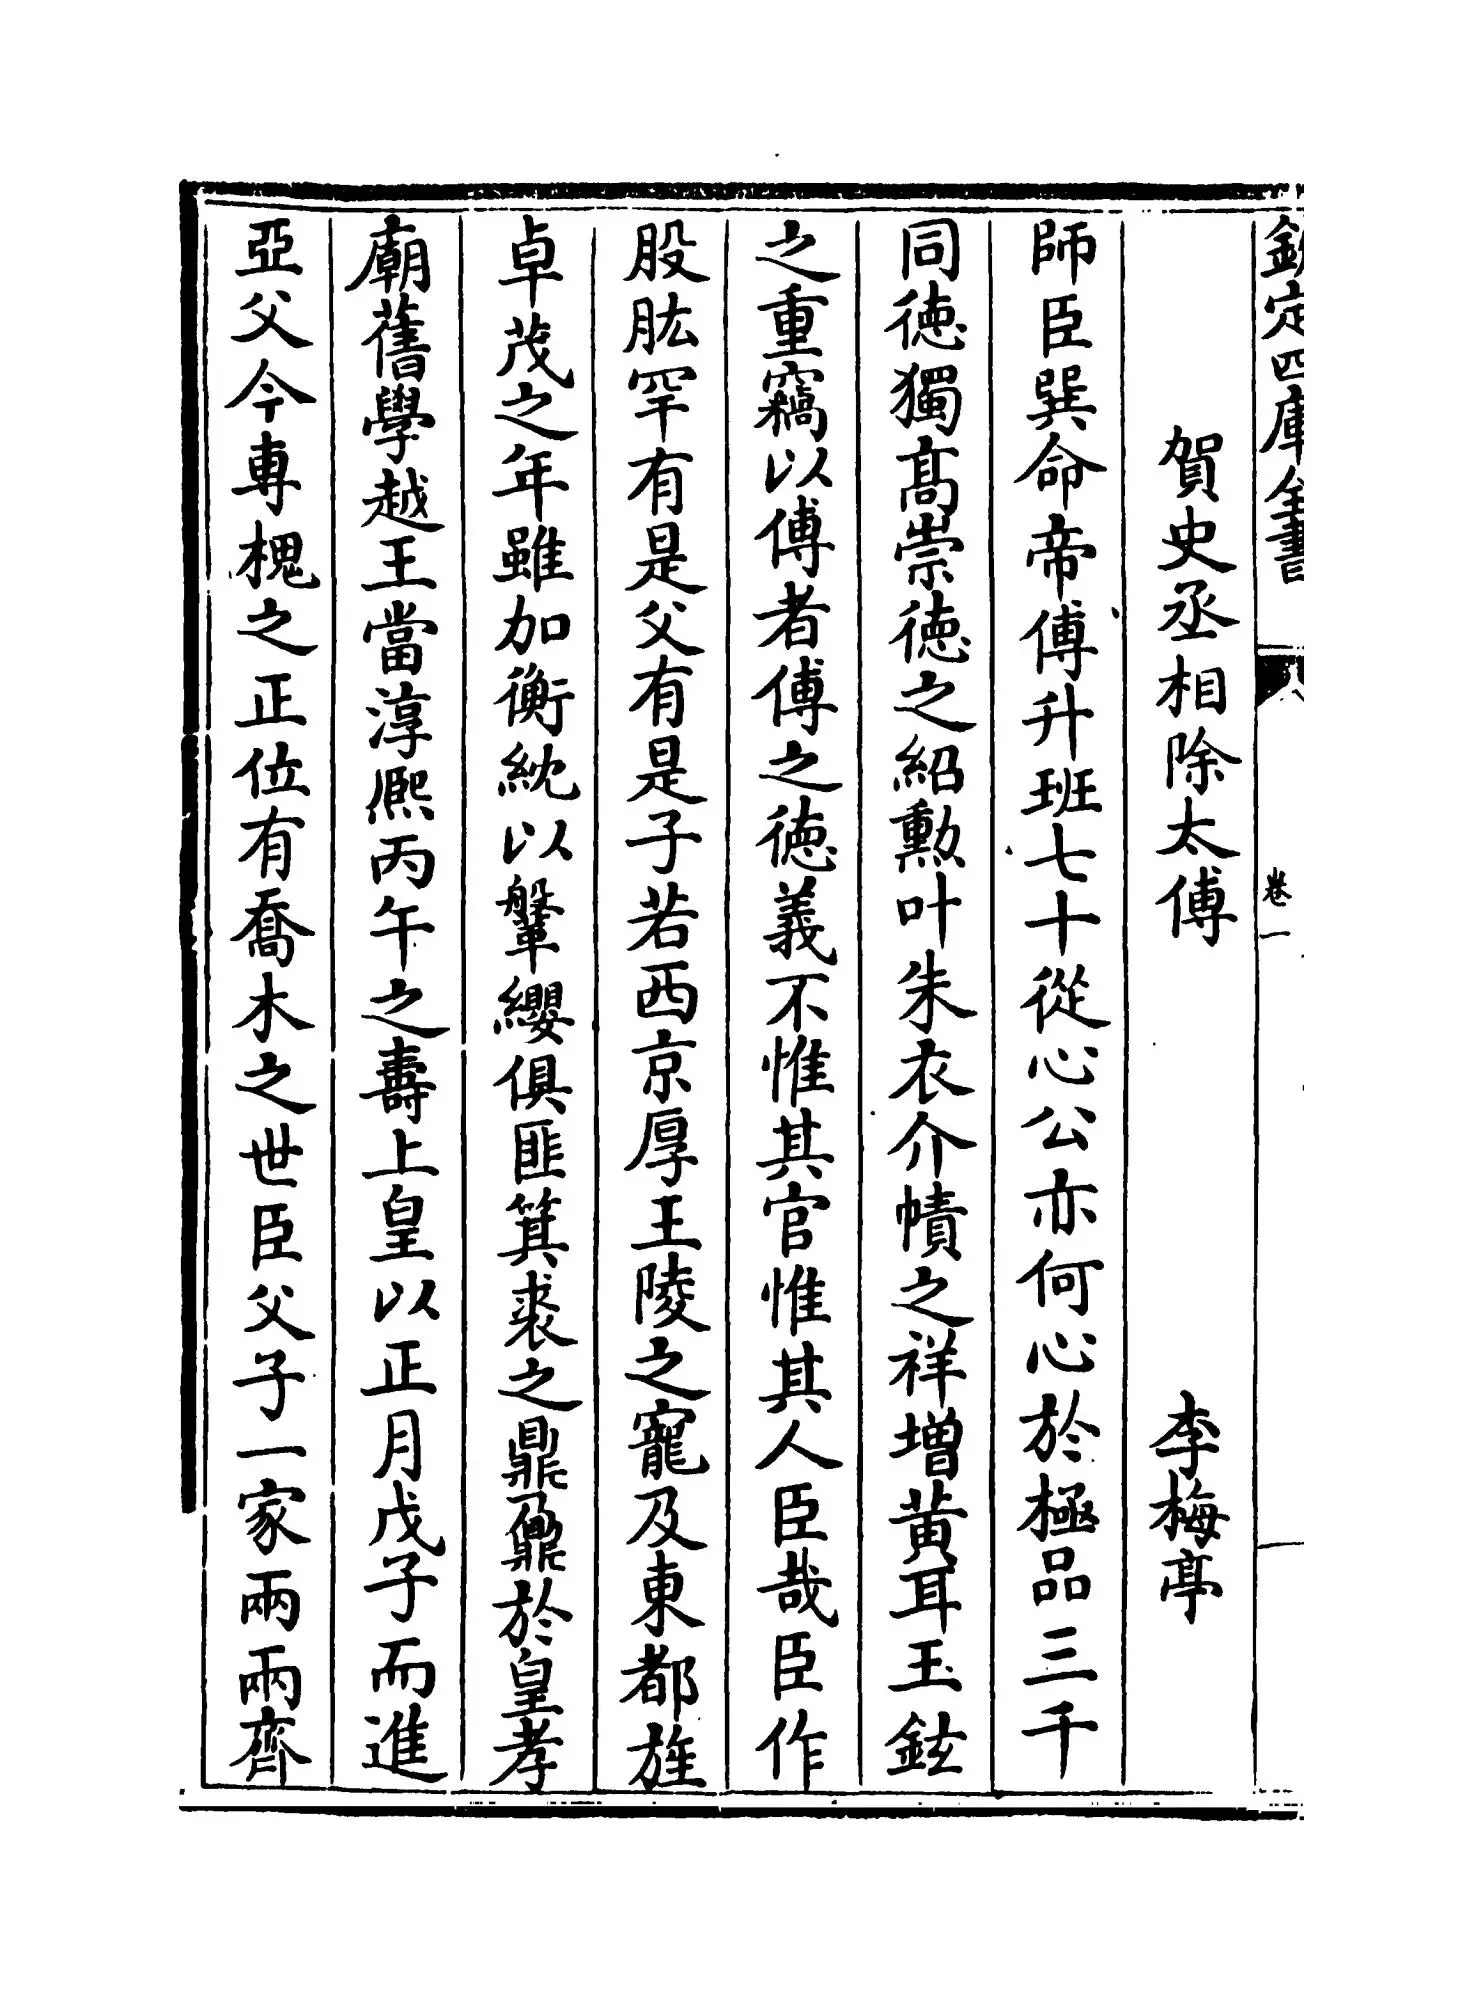 欽定四庫全書
卷一
賀史丞相除太傅 李梅亭
師臣巽命帝傅升班七十從心公亦何心於極品三千
同徳獨髙崇徳之紹勲叶朱衣介幘之祥増黄耳玉鉉
之重竊以傅者傅之徳義不惟其官惟其人臣哉臣作
股肱罕有是父有是子若西京厚王陵之寵及東都旌
卓茂之年雖加衡紞以鞶纓俱匪箕裘之鼎鼐於皇孝
廟舊學越王當淳熈丙午之壽上皇以正月戊子而進
亞父今専槐之正位有喬木之世臣父子一家兩兩齊